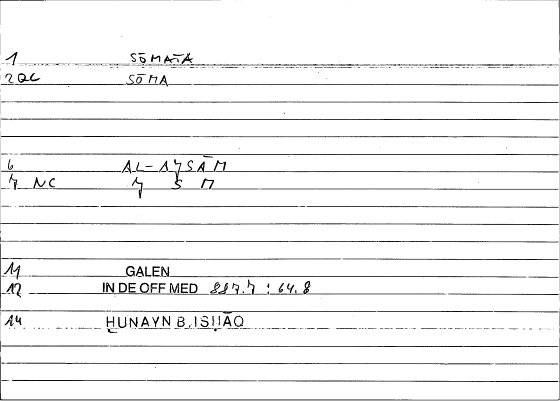 1 SŌMATA
2QC SŌMA
6 AL-AJSĀM
7 NC J S M
11 GALEN
12 IN DE OFF MED 887.7 : 64.8
14 ḤUNAYN B. ISḤĀQ